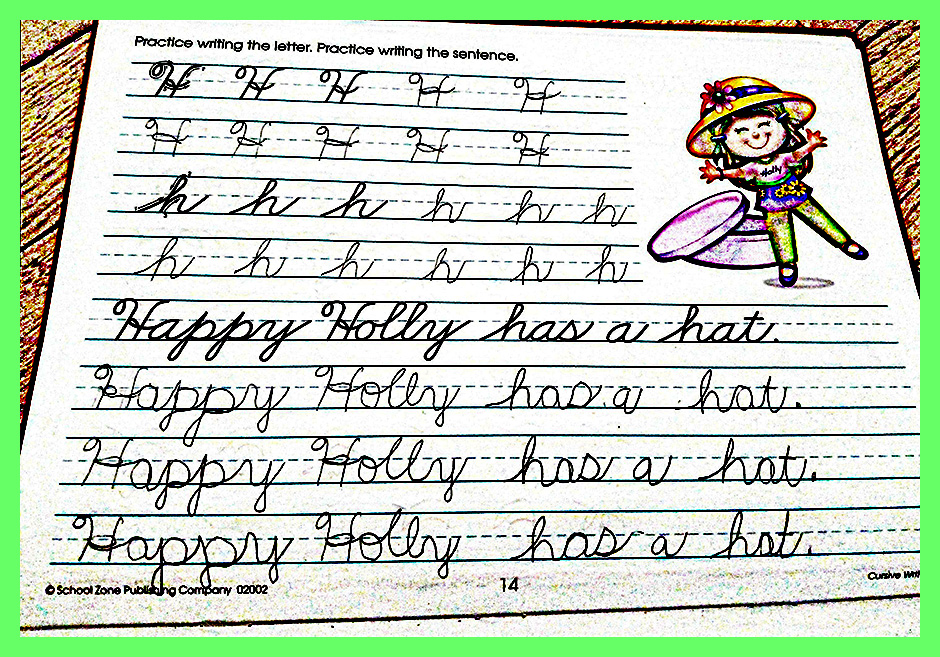 Practice writing the letter. Practice writing the sentence.
H H H H H
H H H H H
h h h h h h
h h h h h h
Holly
Happy Holly has a hat.
Happy Holly has a hat.
Happy Holly has a hat.
Happy Holly has a hat.
© School Zone Publishing Company 02002
14
Cursive